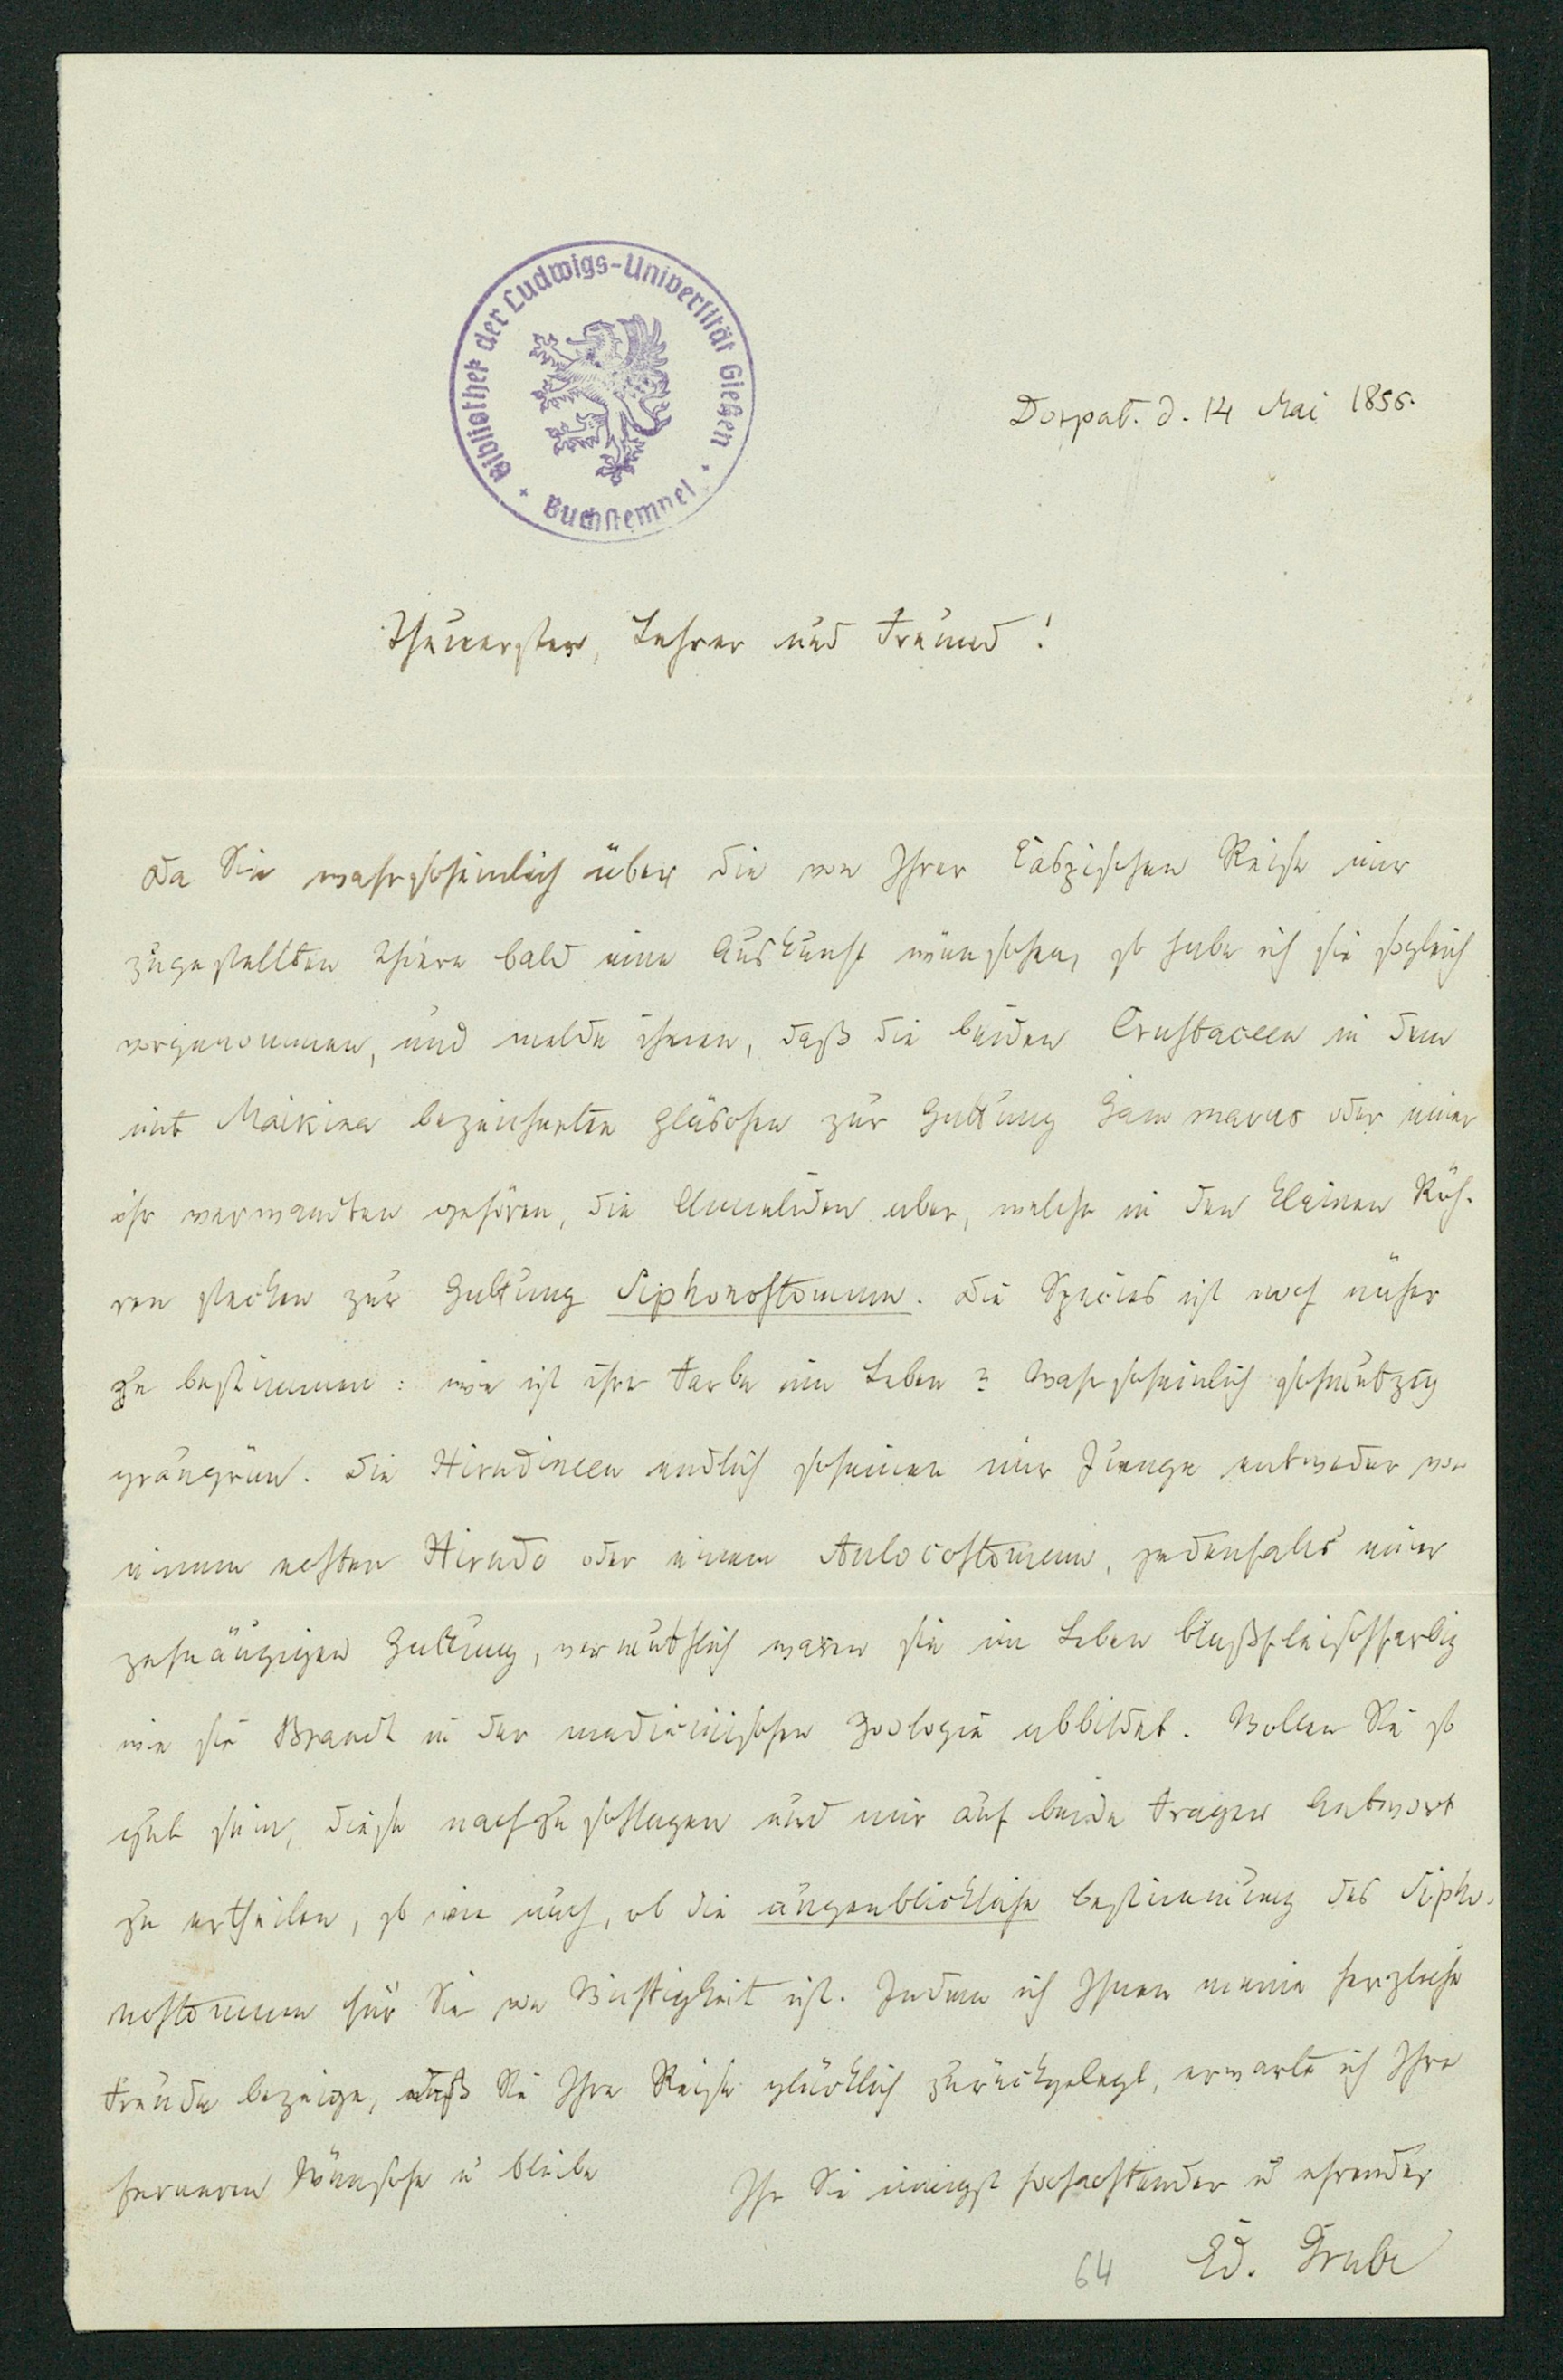 Bibliothek der Ludwigs-Universität Gießen
Buchstempel
Dorpat. d. 14 Mai 1855.
Theuerster, Lehrer und Freund!
Da Sie wahrscheinlich über die von Ihrer Caspischen Reise mir
zugestellten Thiere bald eine Auskunft wünschen, so habe ich sie sogleich
vorgenommen, und melde ihnen, daß die beiden Crustaceen in dem
mit Maikina bezeichneten Gläschen zur Gattung Gammarus oder einer
ihr verwandten gehören, die Anneliden aber, welche in den kleinen Röh-
ren stecken zur Gattung Siphonostomum. Die Species ist noch näher
zu bestimmen: wie ist ihre Farbe im Leben? Wahrscheinlich schmutzig
graugrün. Die Hirudineen endlich scheinen mir Junge entweder von
einem echten Hirudo oder einem Aulocostomum, jedenfalls einer
zehnäugigen Gattung, vermuthlich waren sie im Leben blaßfleischfarbig
wie sie Brandt in der medicinischen Zoologie abbildet. Wollen Sie so
gut sein, diese nachzuschlagen und mir auf beide Fragen Antwort
zu ertheilen, so wie auch, ob die augenblickliche Bestimmung des Sipho-
nostomum für Sie von Wichtigkeit ist. Indem ich Ihnen meine herzliche
Freude bezeige, daß Sie Ihre Reise glücklich zurückgelegt, erwarte ich Ihre
ferneren Wünsche u bleibe
Ihr Sie innigst hochachtender u ehrender
Ed. Grube
64